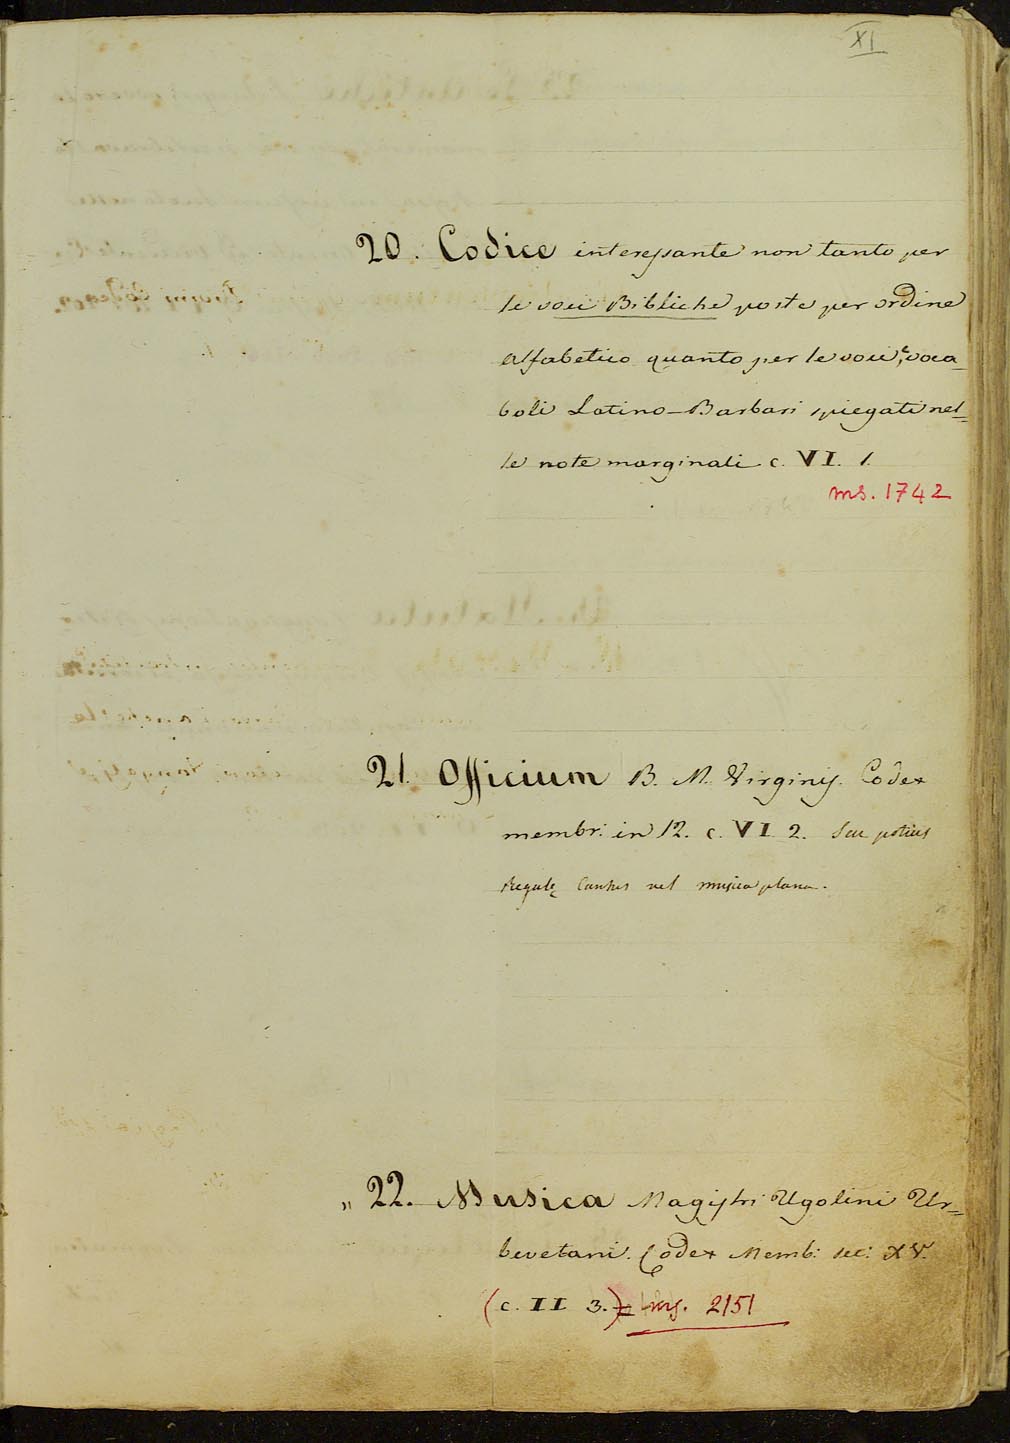 XI
20. Codice interessante non tanto per
le voci Bibliche poste per ordine
alfabetico quanto per le voci, e voca-
boli Latino-Barbari spiegati nel-
le note marginali c. VI. 1.
ms. 1742
21. Officium B. M. Virginis. Codex
membr: in 12. c. VI 2. Seu potius
Regulę Cantus vel musica plana.
„ 22. Musica Magistri Ugolini Ur-
bevetani. Codex Memb: sec: XV.
(c. II 3.) = ms. 2151